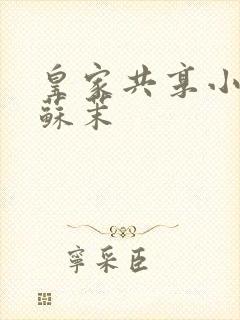 皇家共享小
蘇茉
寧采臣